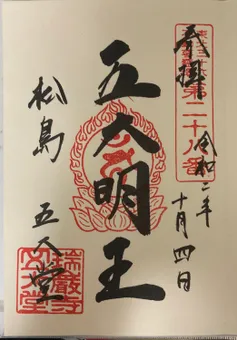 奉拝
第二十八番
令和二年
十月四日
五大明王
松島
五大堂
瑞巌寺
五大堂